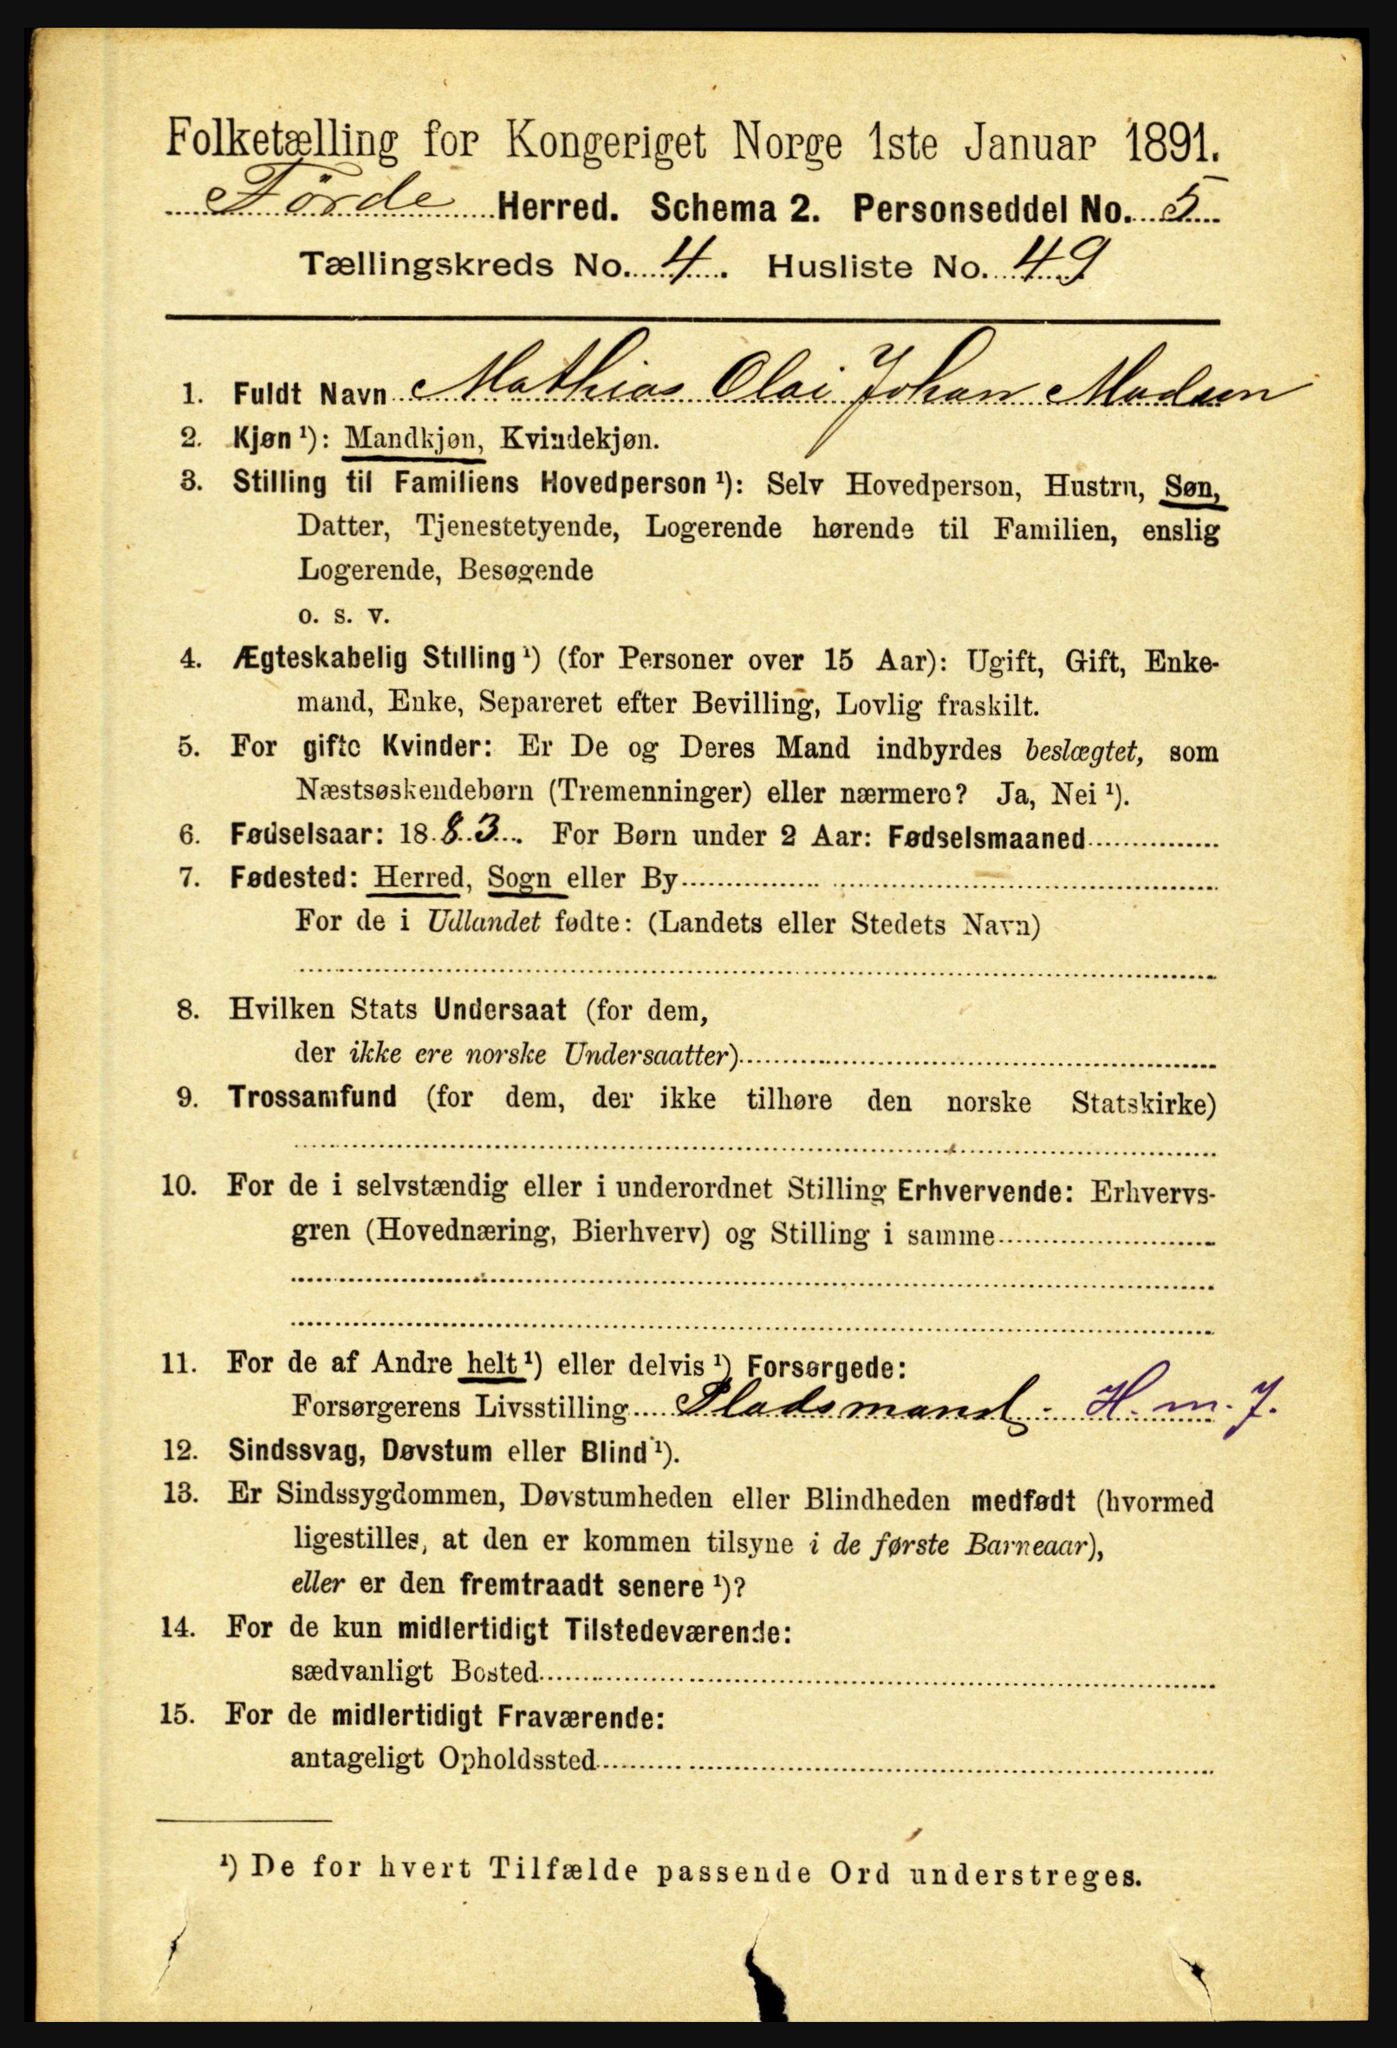 Folketælling for Kongeriget Norge 1ste Januar 1891.
Førde Herred. Schema 2. Personseddel No. 5
Tællingskreds No. 4. Husliste No. 49
1. Fuldt Navn Mathias Olai Johan Madsen
2. Kjøn ¹): Mandkjøn, Kvindekjøn.
3. Stilling til Familiens Hovedperson ¹): Selv Hovedperson, Hustru, Søn,
Datter, Tjenestetyende, Logerende hørende til Familien, enslig
Logerende, Besøgende
o. s. v.
4. Ægteskabelig Stilling ¹) (for Personer over 15 Aar): Ugift, Gift, Enke-
mand, Enke, Separeret efter Bevilling, Lovlig fraskilt.
5. For gifte Kvinder: Er De og Deres Mand indbyrdes beslægtet, som
Næstsøskendebørn (Tremenninger) eller nærmere? Ja, Nei ¹).
6. Fødselsaar: 1883. For Børn under 2 Aar: Fødselsmaaned
7. Fødested: Herred, Sogn eller By
For de i Udlandet fødte: (Landets eller Stedets Navn)
8. Hvilken Stats Undersaat (for dem,
der ikke ere norske Undersaatter)
9. Trossamfund (for dem, der ikke tilhøre den norske Statskirke)
10. For de i selvstændig eller i underordnet Stilling Erhvervende: Erhvervs-
gren (Hovednæring, Bierhverv) og Stilling i samme
11. For de af Andre helt ¹) eller delvis ¹) Forsørgede:
Forsørgerens Livsstilling Pladsmand. H. m. J.
12. Sindssvag, Døvstum eller Blind ¹).
13. Er Sindssygdommen, Døvstumheden eller Blindheden medfødt (hvormed
ligestilles, at den er kommen tilsyne i de første Barneaar),
eller er den fremtraadt senere ¹)?
14. For de kun midlertidigt Tilstedeværende:
sædvanligt Bosted
15. For de midlertidigt Fraværende:
antageligt Opholdssted
¹) De for hvert Tilfælde passende Ord understreges.